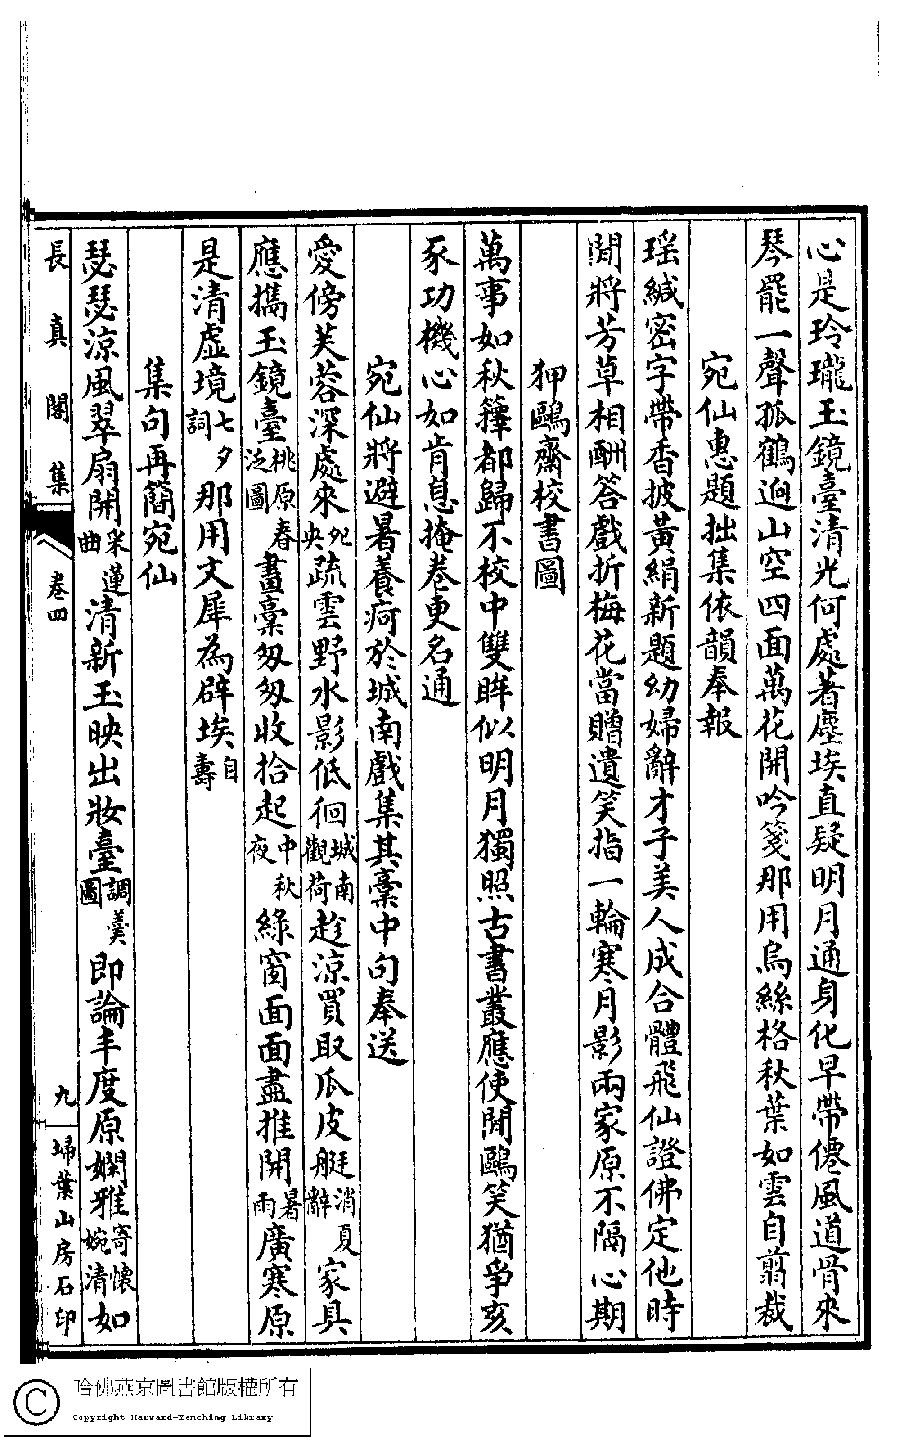 心是玲瓏玉鏡臺清光何處著塵埃直疑明月通身化早帶僊風道骨來
琴罷一聲孤鶴迥山空四面萬花開吟箋那用烏絲格秋葉如雲自翦裁
宛仙惠題拙集依韻奉報
瑶緘密字帶香披黃絹新題幼婦辭才子美人成合體飛仙證佛定他時
閒將芳草相酬答戲折梅花當贈遺笑指一輪寒月影兩家原不隔心期
狎鷗齋校書圖
萬事如秋籜都歸不校中雙眸似明月獨照古書叢應使閒鷗笑猶爭亥
豕功機心如肯息掩卷更名通
宛仙將避暑養疴於城南戲集其稾中句奉送
愛傍芙蓉深處來 央 疏雲野水影低徊城南觀荷趁涼買取瓜皮艇消夏辭家具
應攜玉鏡臺桃原春泛圖畫稾匆匆收拾起中秋夜綠窗面面盡推開暑雨廣寒原
是清虛境七夕詞那用文犀為辟埃自壽
集句再簡宛仙
瑟瑟涼風翠扇開采蓮曲清新玉映出妝臺調羹圖即論丰度原嫻雅寄懷婉清如
長真閣集
卷四
九
埽葉山房石印
哈佛燕京圖書館版權所有
Copyright Harvard-Yenching Library